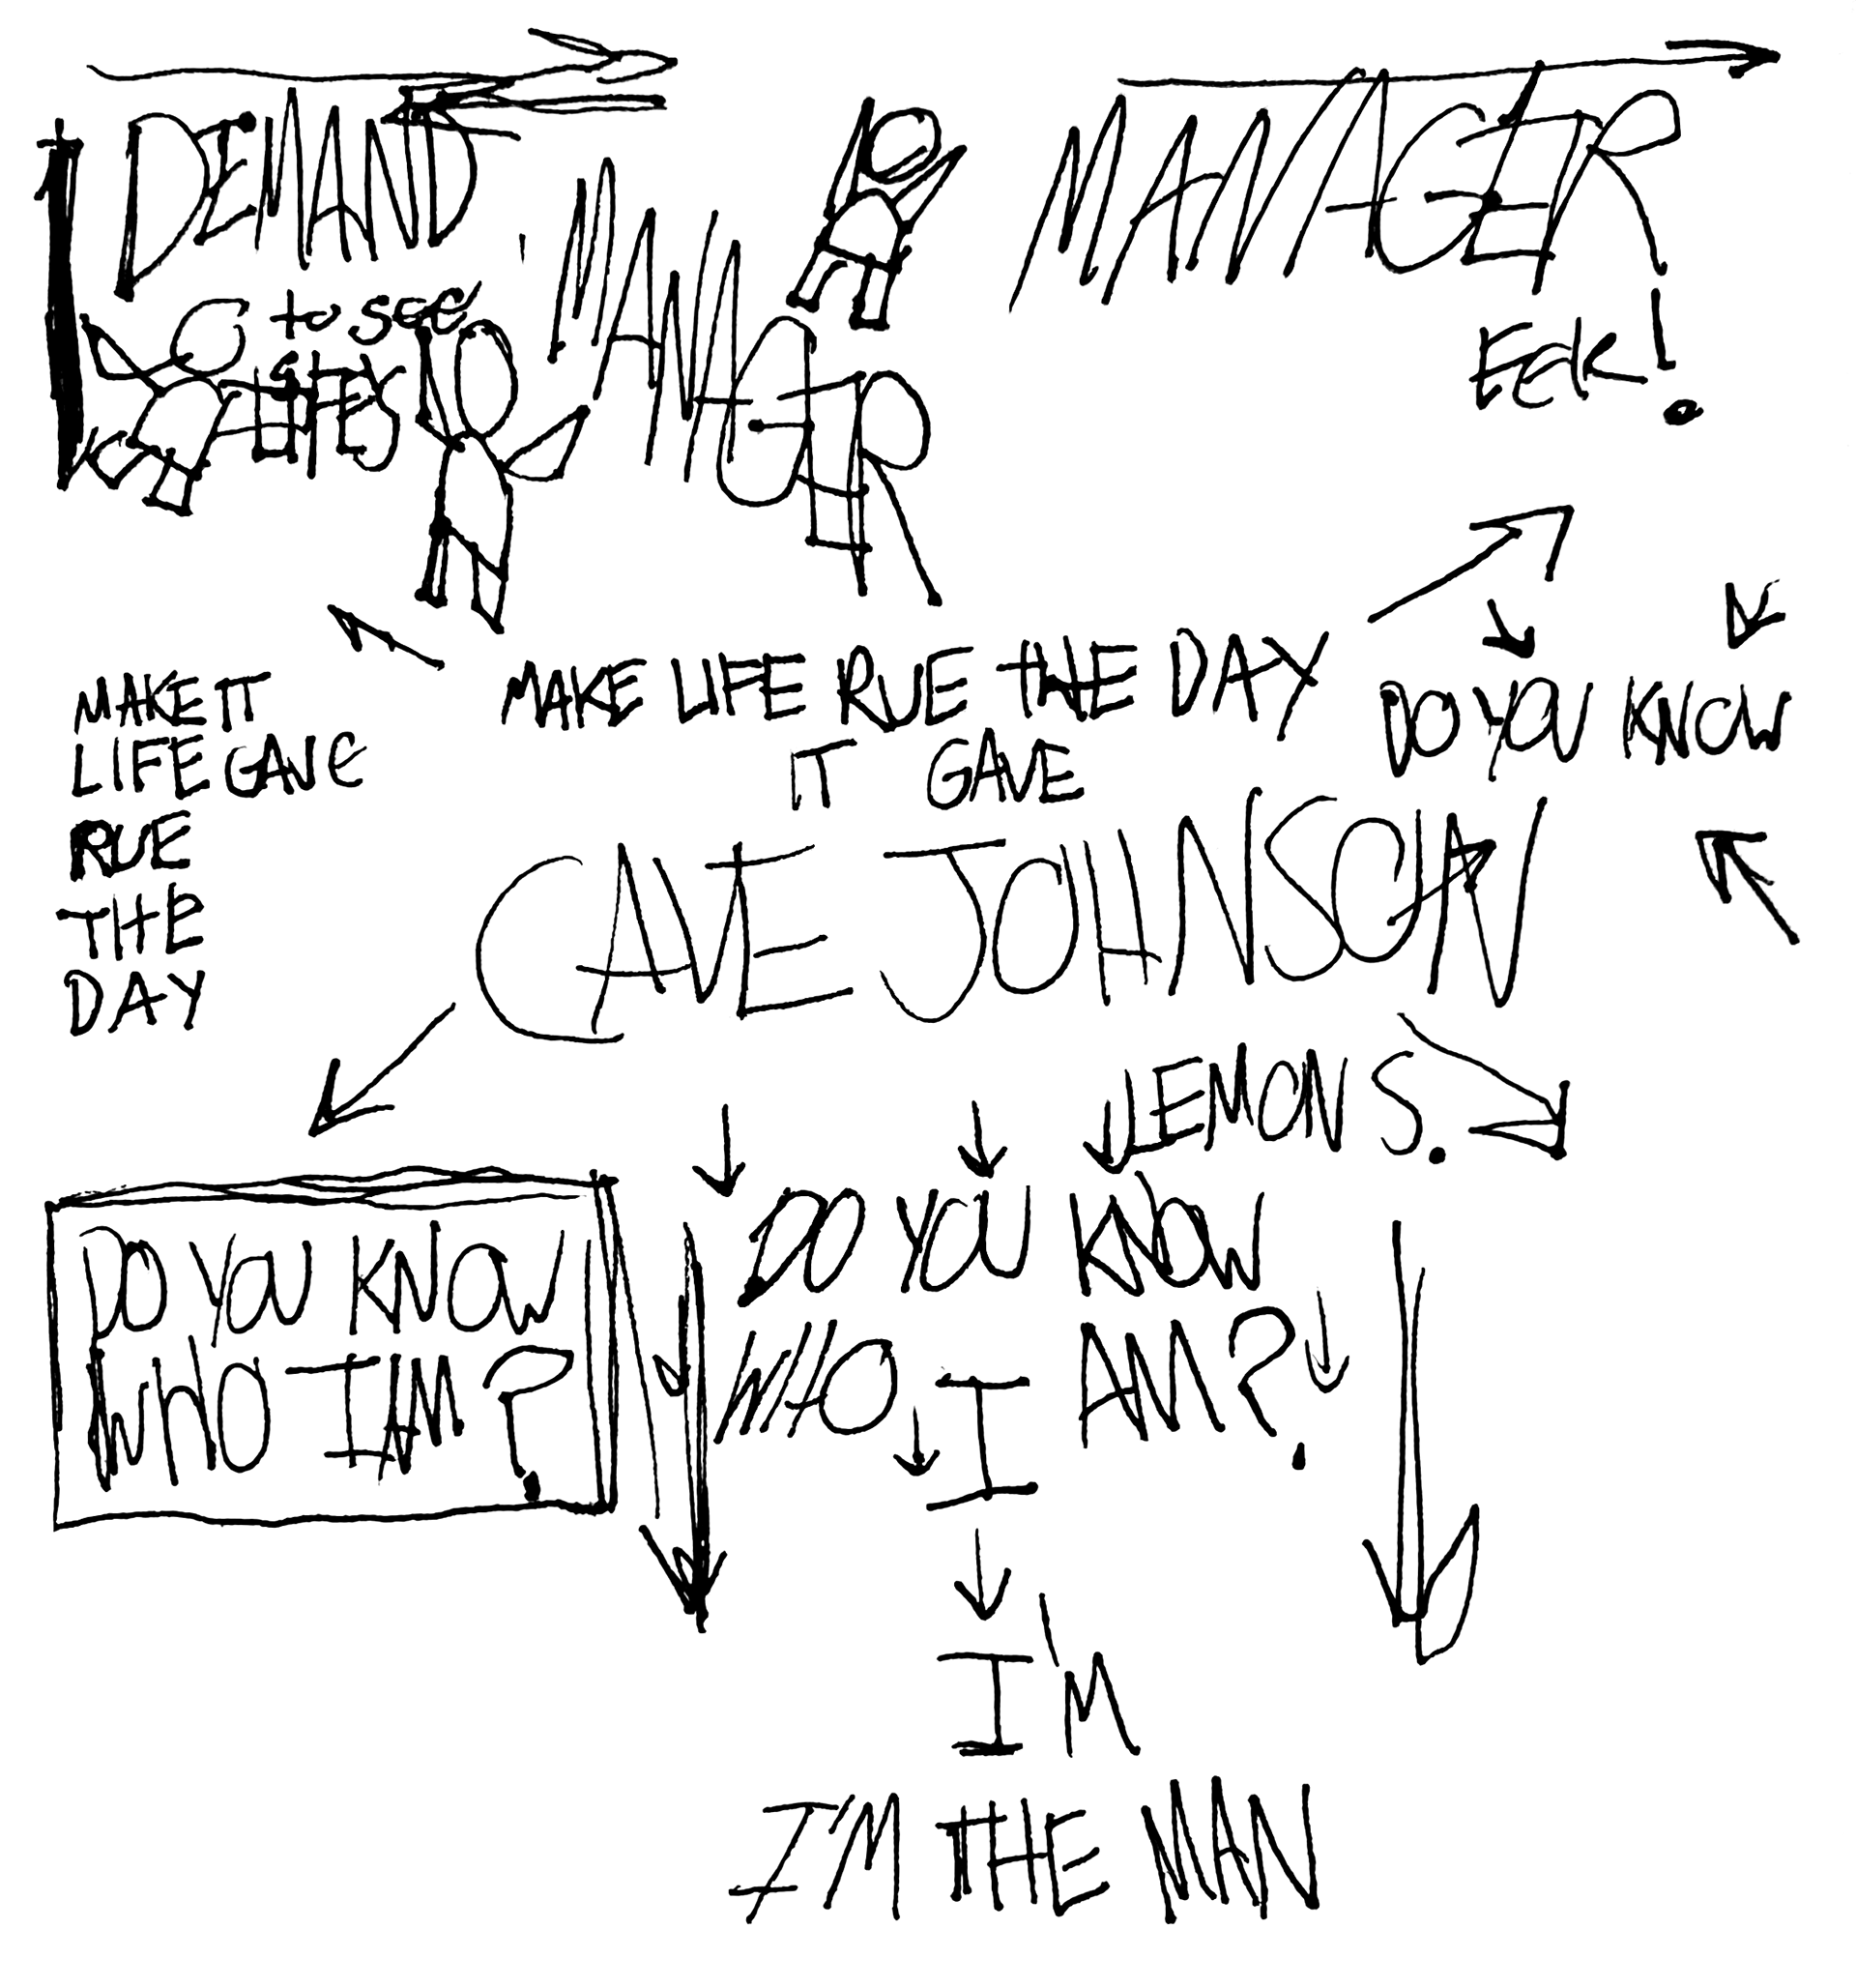 DEMAND
MANAGER
to see
LIFE'S
MANAGER
EEK!
MAKE LIFE RUE THE DAY
IT GAVE
CAVE JOHNSON
LEMONS.
DO YOU KNOW
MAKE IT
LIFE GAVE
RUE
THE
DAY
DO YOU KNOW
WHO IM?
DO YOU KNOW
WHO I AM?
I'M
I'M THE MAN